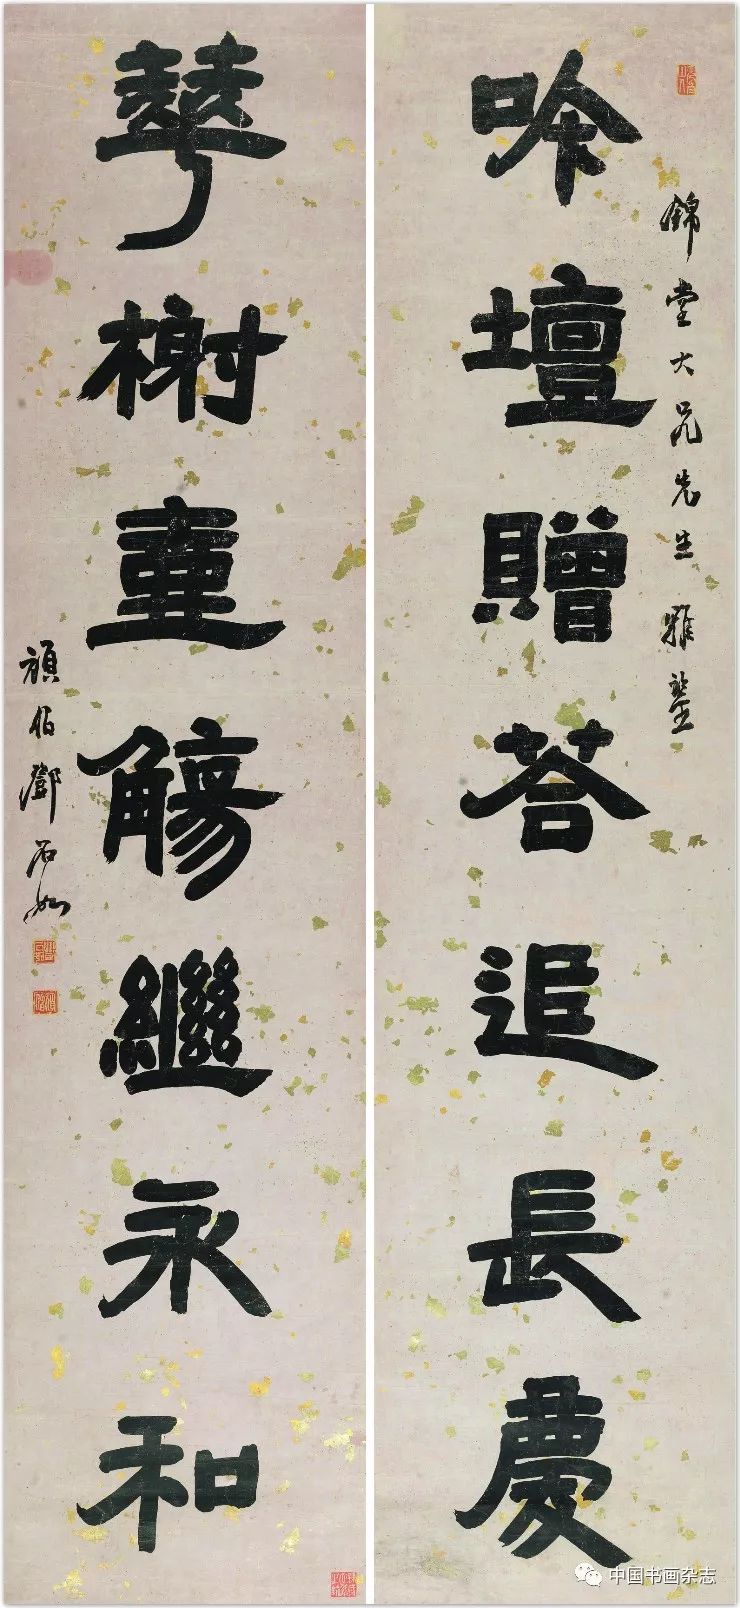 吟壇贈荅追長慶
錦堂大兄先生雅鍳
華榭壺觴繼永和
頑伯鄧石如
中国书画杂志